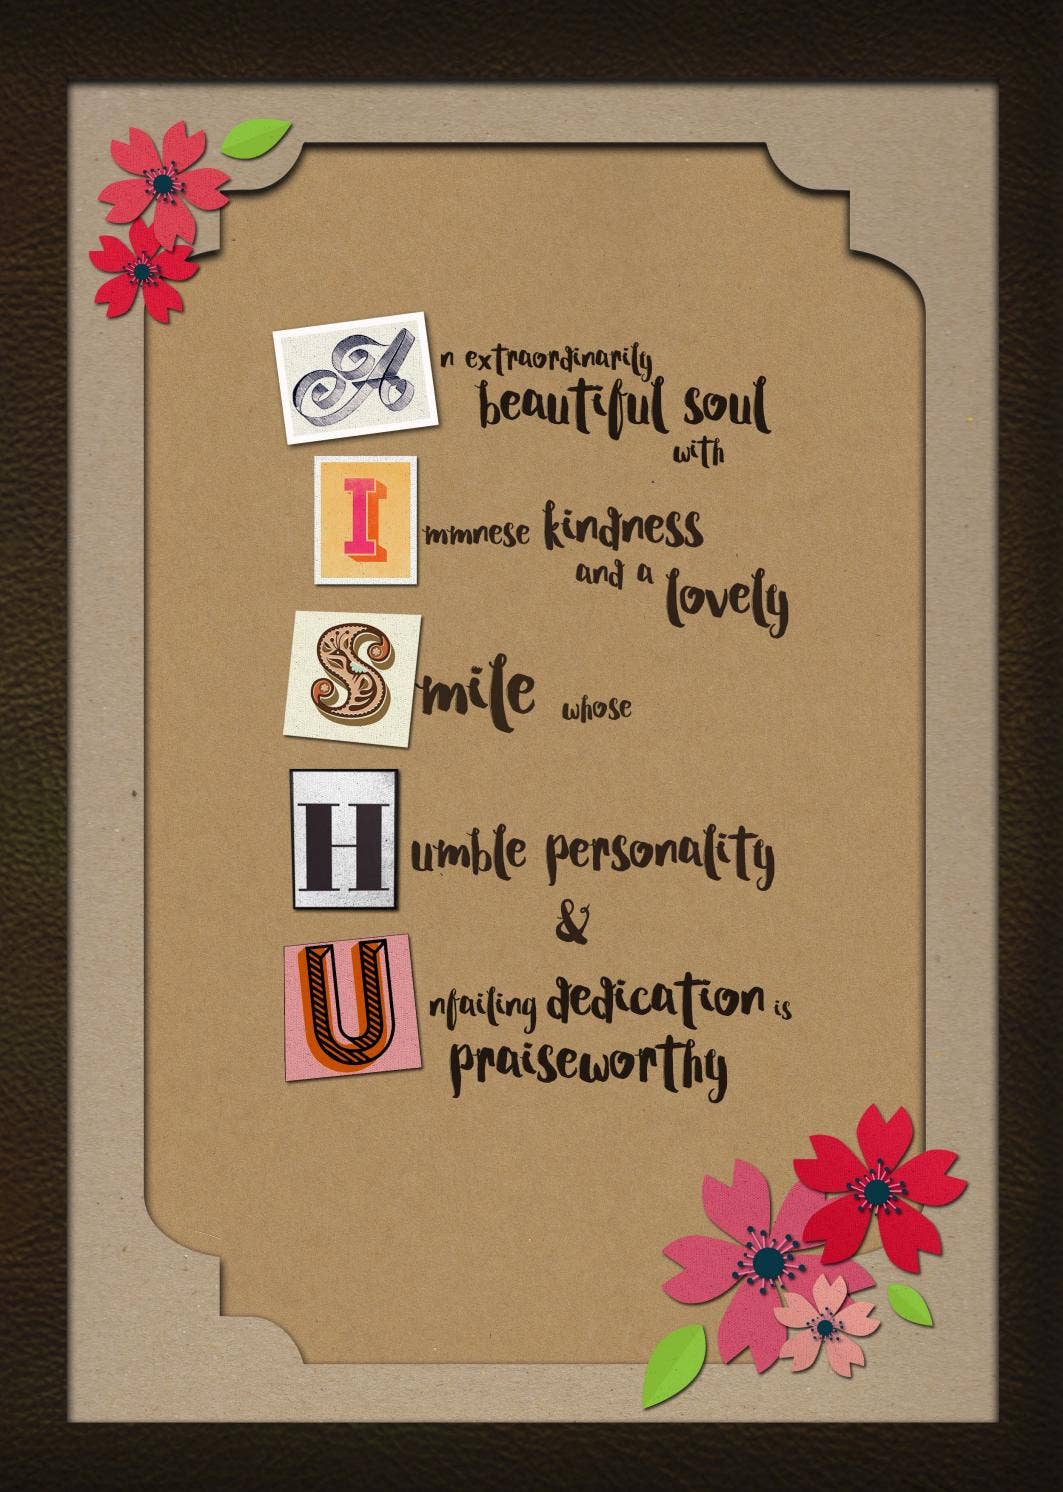 An extraordinarily
beautiful soul
with
Immnese kindness
and a lovely
Smile whose
Humble personality
&
Unfailing dedication is
praiseworthy